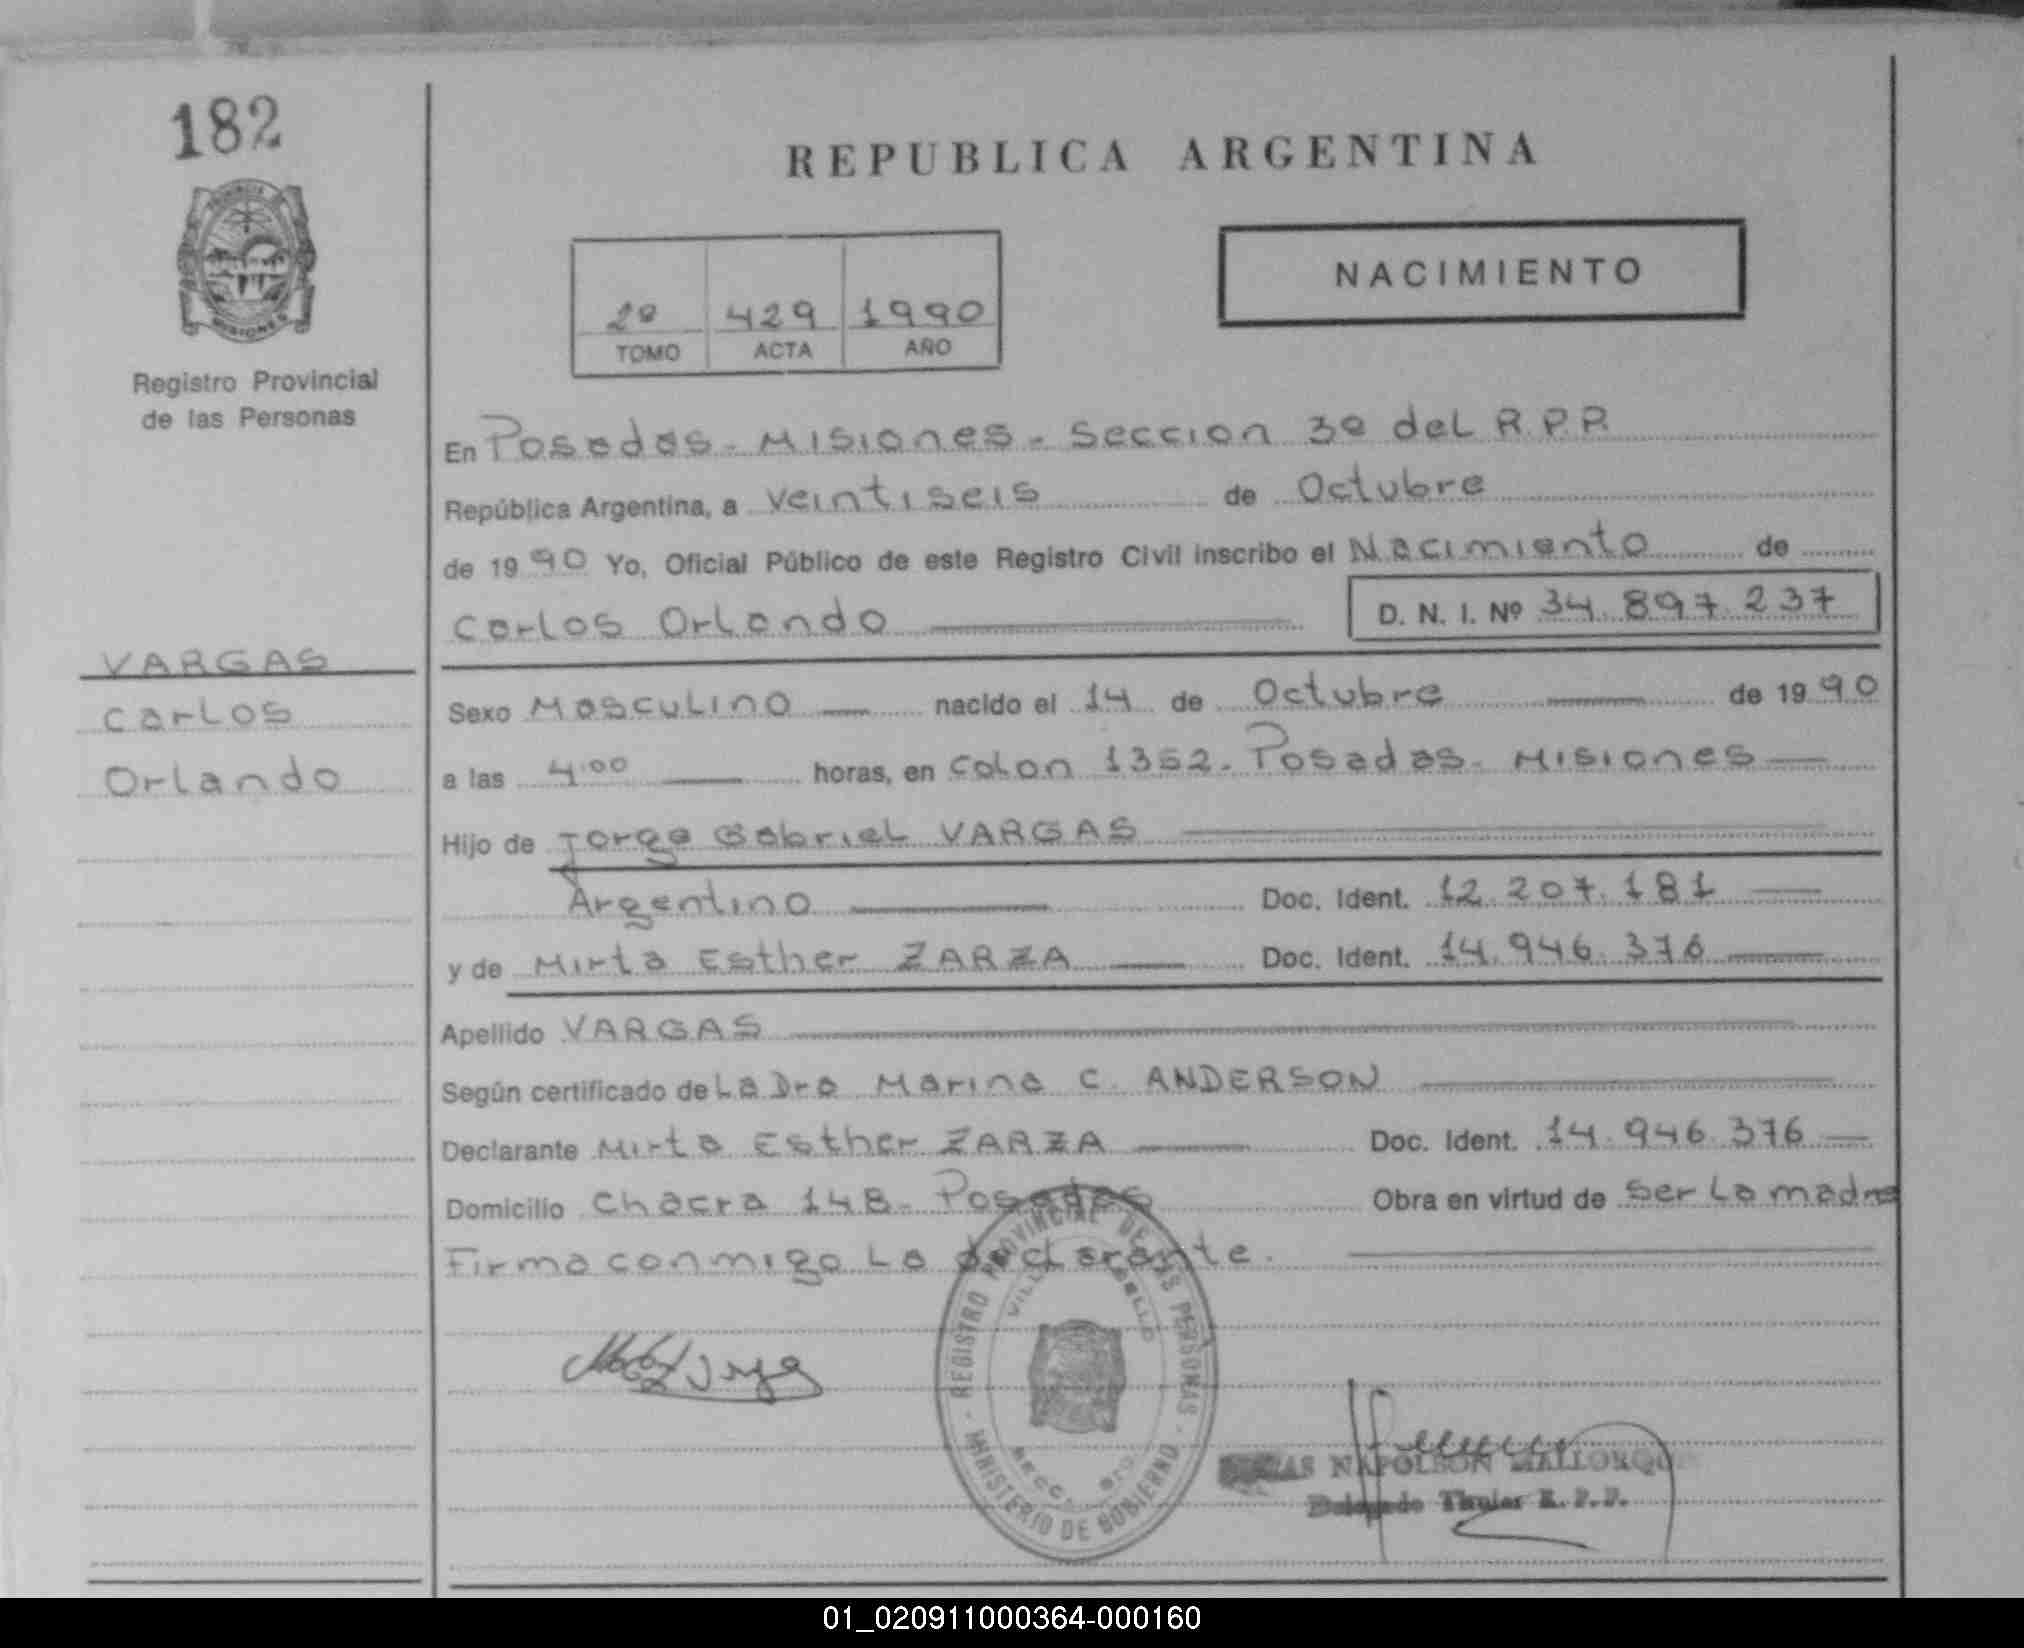 182
REPUBLICA ARGENTINA
NACIMIENTO
2º 429 1990
TOMO ACTA AÑO
MISIONES
Registro Provincial
de las Personas
En Posadas - Misiones - Seccion 3º del R.P.P.
República Argentina, a veintiseis de Octubre
de 1990 Yo, Oficial Público de este Registro Civil inscribo el Nacimiento de
Carlos Orlando D. N. I. Nº 34.897.237
VARGAS
Carlos
Orlando
Sexo Masculino nacido el 14 de Octubre de 1990
a las 4:00 horas, en Colon 1352. Posadas. Misiones
Hijo de Jorge Gabriel VARGAS
Argentino Doc. Ident. 12.207.181
y de Mirta Esther ZARZA Doc. Ident. 14.946.376
Apellido VARGAS
Según certificado de La Dra Marina C. ANDERSON
Declarante Mirta Esther ZARZA Doc. Ident. 14.946.376
Domicilio Chacra 148 - Posadas Obra en virtud de ser La madre
Firma conmigo La declarante.
REGISTRO PROVINCIAL DE LAS PERSONAS
MINISTERIO DE GOBIERNO
NAPOLEON MALLORQUIN
Delegado Titular R.P.P.
01_020911000364-000160